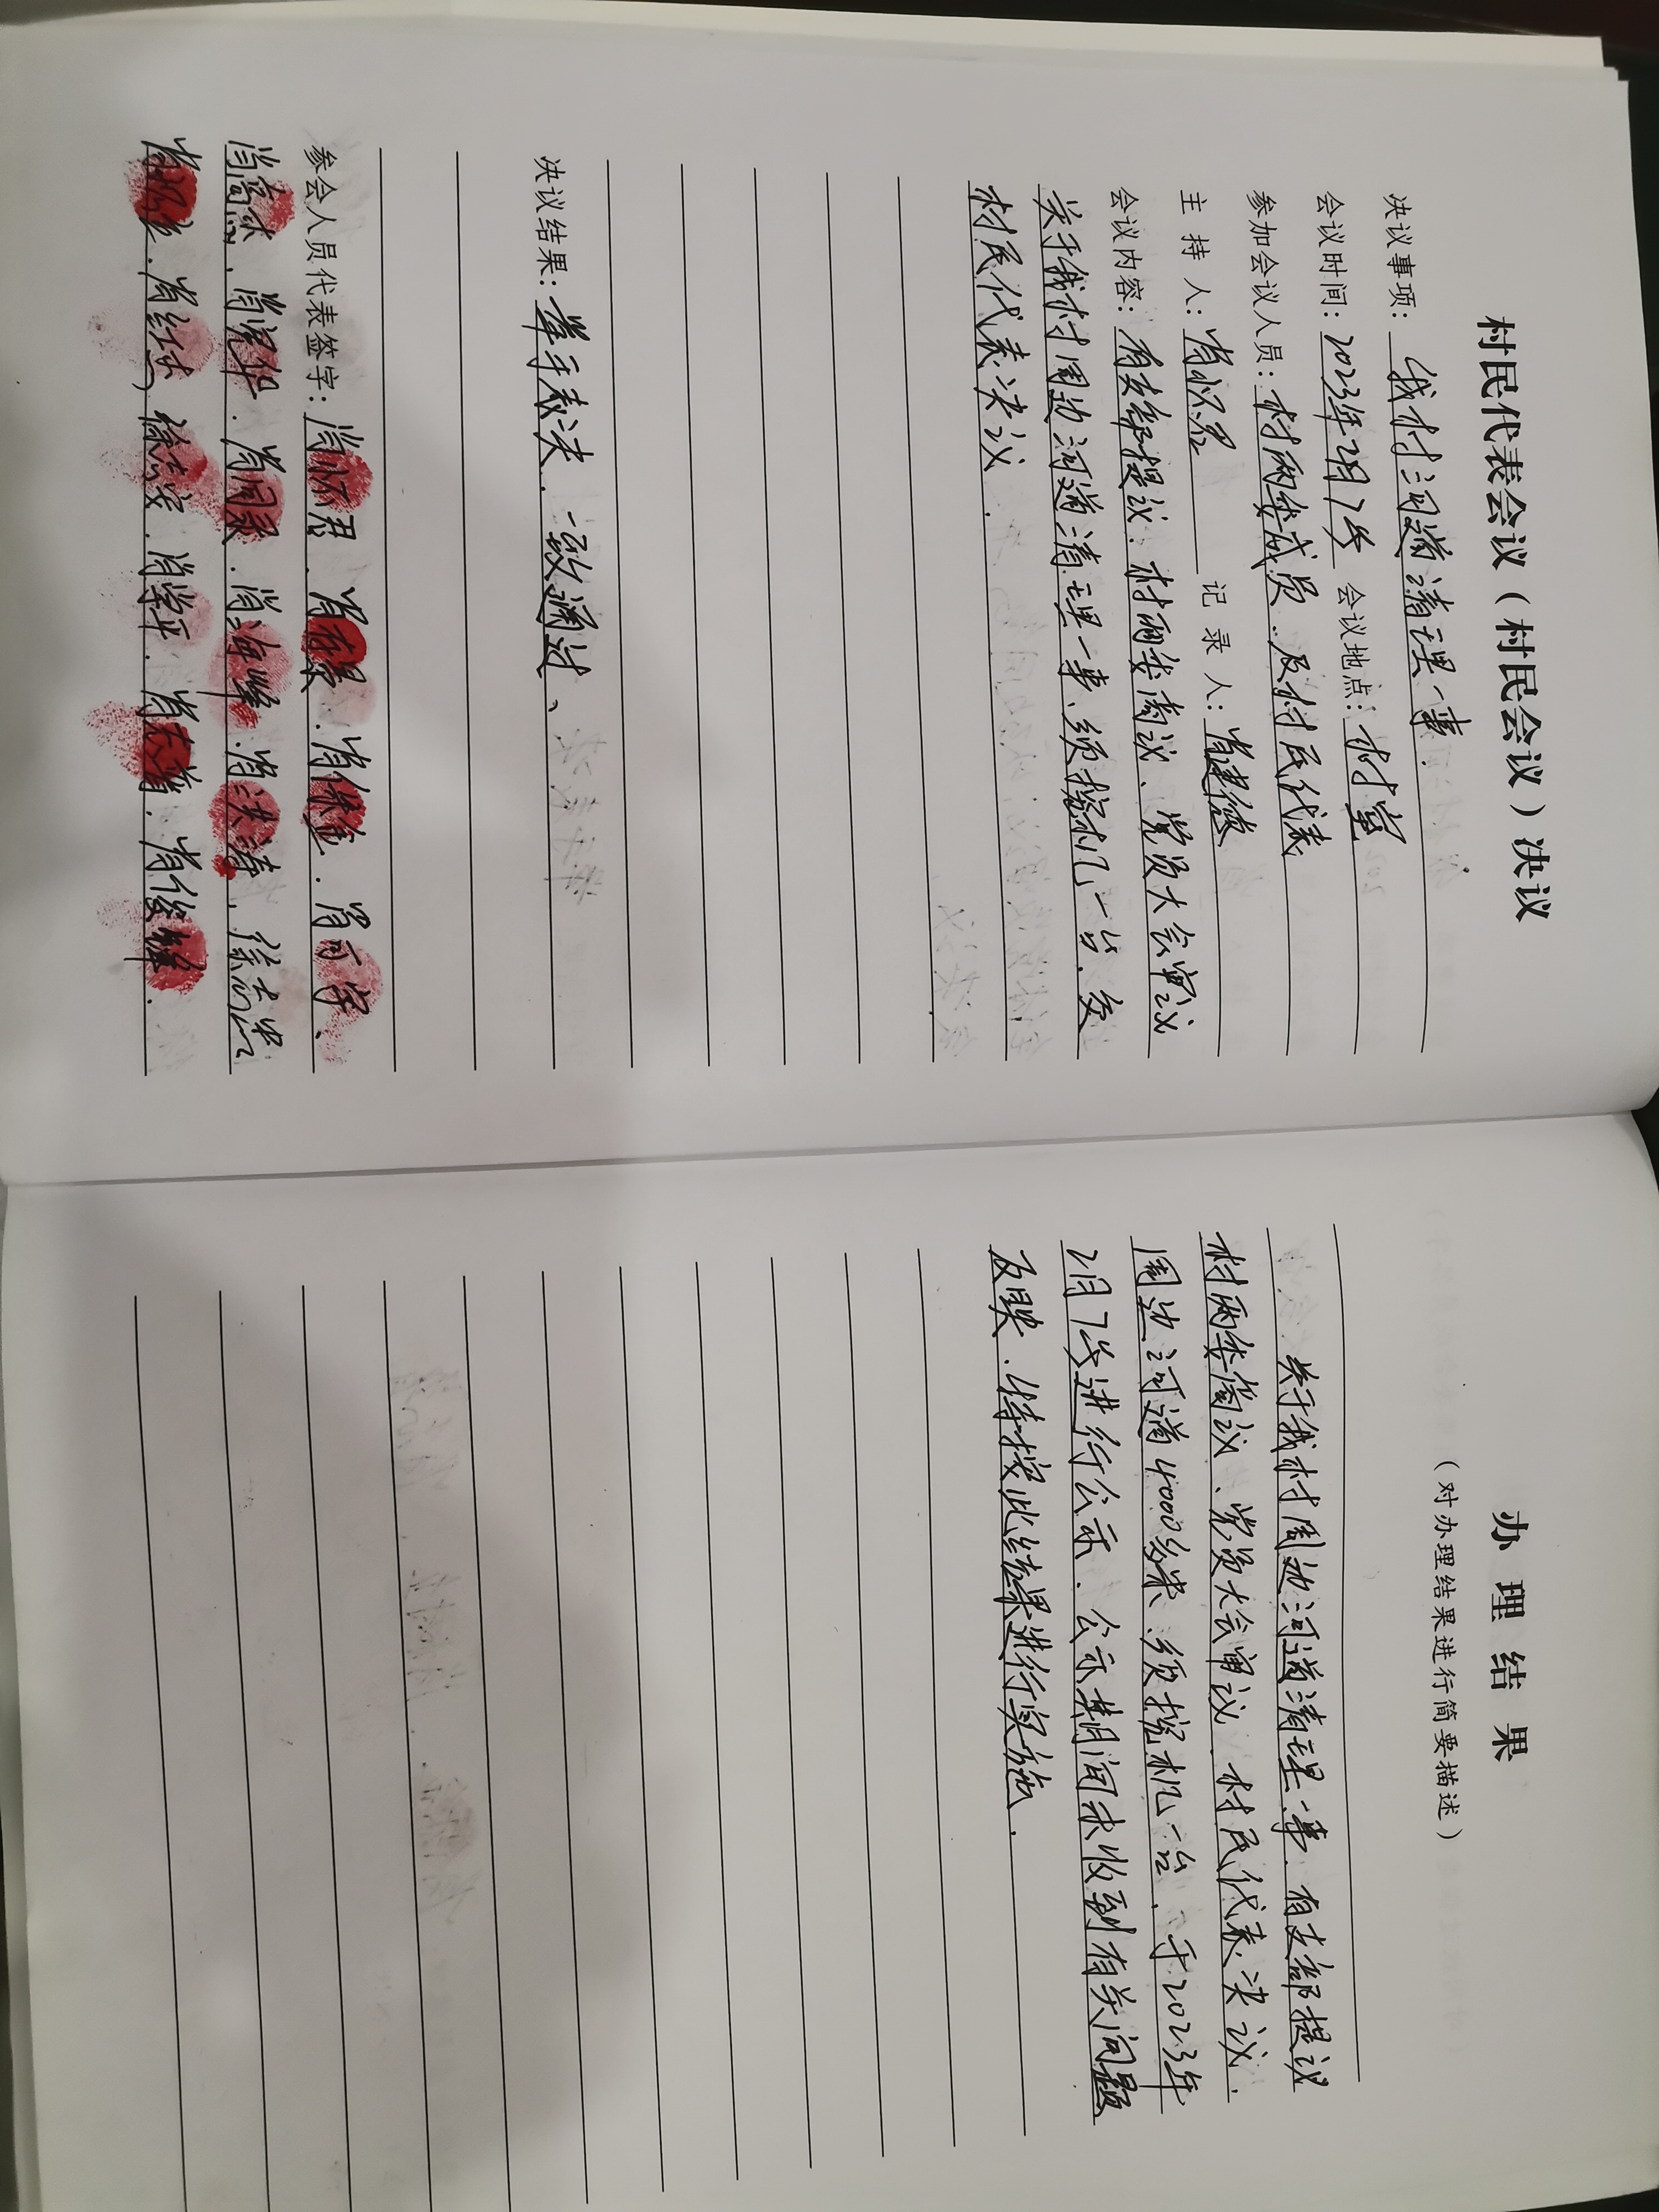 村民代表会议（村民会议）决议
决议事项：我村河道清理一事.
会议时间：2023年2月7号 会议地点：村室
参加会议人员：村两委成员、及村民代表
主持人：肖怀君 记录人：肖建德
会议内容：有支部提议、村两委商议、党员大会审议
关于我村周边河道清理一事、须挖机一台、交
村民代表决议.
决议结果：举手表决、一致通过、
参会人员代表签字：肖怀君、肖存景、肖保金、肖可字、
肖高杰、肖宪华、肖同录、肖海峰、肖洪涛、徐志忠
肖红杰、徐志安、肖学平、肖志普、肖俊锋.
办理结果
（对办理结果进行简要描述）
关于我村周边河道清理一事、有支部提议
村两委商议、党员大会审议、村民代表决议、
周边河道4000多米、须挖机一台、于2023年
2月7号进行公示、公示期间未收到有关问题
反映、特按此结果进行实施.